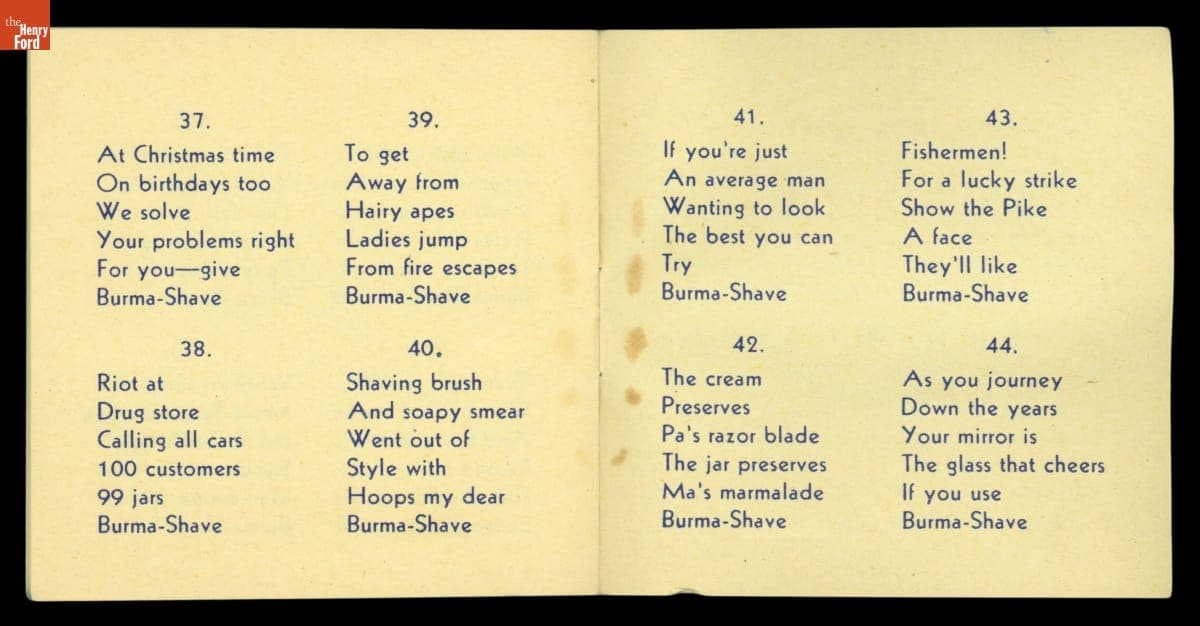 the
Henry
Ford
37.
At Christmas time
On birthdays too
We solve
Your problems right
For you—give
Burma-Shave
38.
Riot at
Drug store
Calling all cars
100 customers
99 jars
Burma-Shave
39.
To get
Away from
Hairy apes
Ladies jump
From fire escapes
Burma-Shave
40.
Shaving brush
And soapy smear
Went out of
Style with
Hoops my dear
Burma-Shave
41.
If you're just
An average man
Wanting to look
The best you can
Try
Burma-Shave
42.
The cream
Preserves
Pa's razor blade
The jar preserves
Ma's marmalade
Burma-Shave
43.
Fishermen!
For a lucky strike
Show the Pike
A face
They'll like
Burma-Shave
44.
As you journey
Down the years
Your mirror is
The glass that cheers
If you use
Burma-Shave